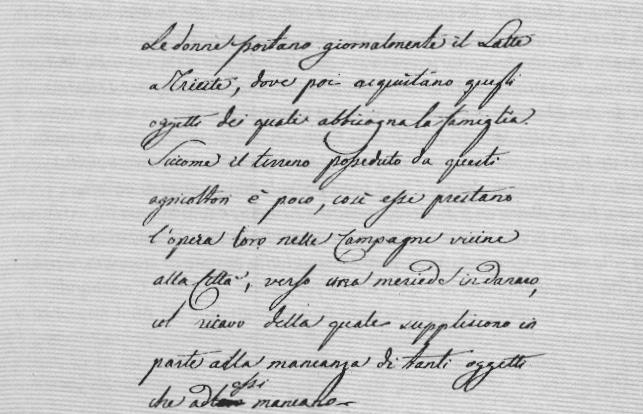 Le donne portano giornalmente il Latte
a Trieste, dove poi acquistano quegli
oggetti dei quali abbisogna la famiglia.
Siccome il terreno posseduto da questi
agricoltori è poco, così essi prestano
l'opera loro nelle Campagne vicine
alla Città, verso una mercede in danaro,
col ricavo della quale suppliscono in
parte alla mancanza di tanti oggetti
che ad essi mancano.